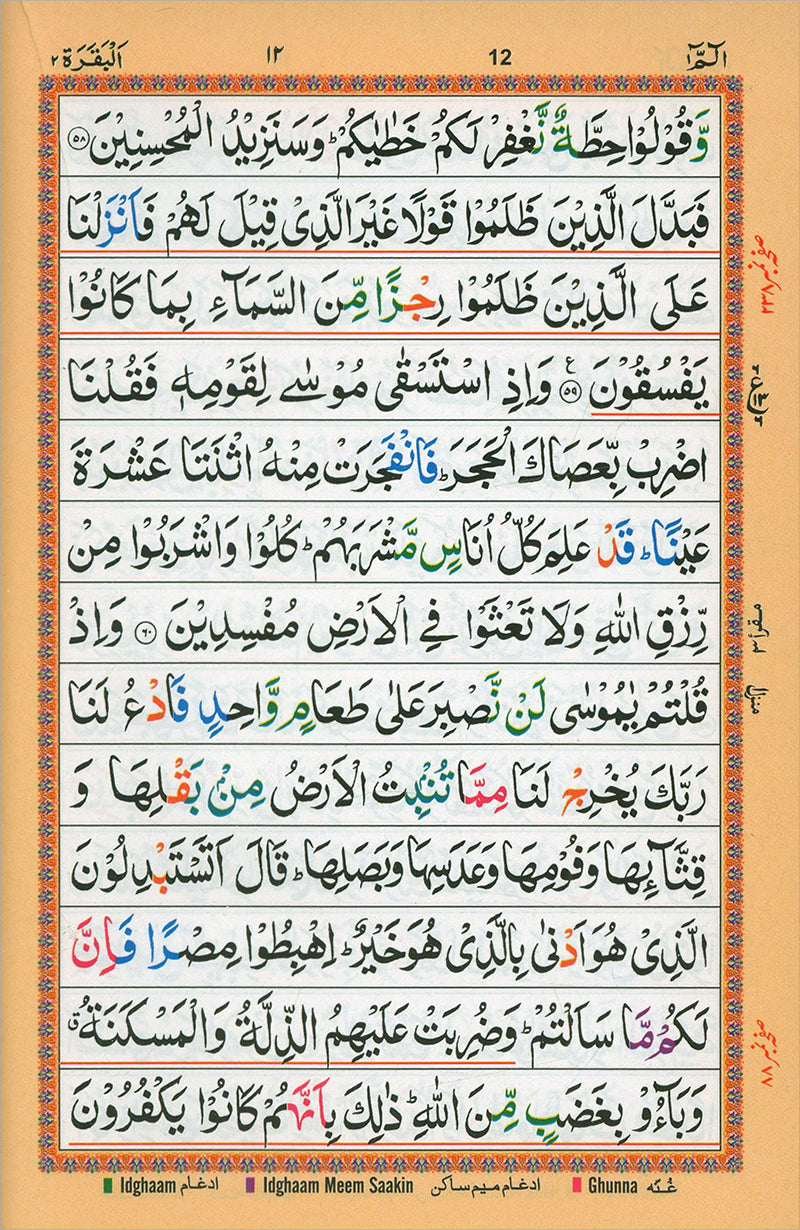 الٓمّٓ ١
12
١٢
اَلْبَقَرَة ٢
وَّقُوْلُوْا حِطَّةٌ نَّغْفِرْ لَكُمْ خَطٰيٰكُمْ ؕ وَسَنَزِيْدُ الْمُحْسِنِيْنَ ﴿٥٨﴾
فَبَدَّلَ الَّذِيْنَ ظَلَمُوْا قَوْلًا غَيْرَ الَّذِىْ قِيْلَ لَهُمْ فَاَنْزَلْنَا
عَلَى الَّذِيْنَ ظَلَمُوْا رِجْزًا مِّنَ السَّمَآءِ بِمَا كَانُوْا
يَفْسُقُوْنَ ﴿٥٩﴾ ع وَاِذِ اسْتَسْقٰى مُوْسٰى لِقَوْمِهٖ فَقُلْنَا
اضْرِبْ بِّعَصَاكَ الْحَجَرَ ؕ فَانْفَجَرَتْ مِنْهُ اثْنَتَا عَشْرَةَ
عَيْنًا ؕ قَدْ عَلِمَ كُلُّ اُنَاسٍ مَّشْرَبَهُمْ ؕ كُلُوْا وَاشْرَبُوْا مِنْ
رِّزْقِ اللّٰهِ وَلَا تَعْثَوْا فِى الْاَرْضِ مُفْسِدِيْنَ ﴿٦٠﴾ وَاِذْ
قُلْتُمْ يٰمُوْسٰى لَنْ نَّصْبِرَ عَلٰى طَعَامٍ وَّاحِدٍ فَادْعُ لَنَا
رَبَّكَ يُخْرِجْ لَنَا مِمَّا تُنْۢبِتُ الْاَرْضُ مِنْۢ بَقْلِهَا وَ
قِثَّآئِهَا وَفُوْمِهَا وَعَدَسِهَا وَبَصَلِهَا ؕ قَالَ اَتَسْتَبْدِلُوْنَ
الَّذِىْ هُوَ اَدْنٰى بِالَّذِىْ هُوَ خَيْرٌ ؕ اِهْبِطُوْا مِصْرًا فَاِنَّ
لَكُمْ مَّا سَاَلْتُمْ ؕ وَضُرِبَتْ عَلَيْهِمُ الذِّلَّةُ وَالْمَسْكَنَةُ ۗ
وَبَآءُوْ بِغَضَبٍ مِّنَ اللّٰهِ ؕ ذٰلِكَ بِاَنَّهُمْ كَانُوْا يَكْفُرُوْنَ
صفحہ نمبر
منزل
صفحہ نمبر ٨٨
Idghaam ادغام
Idghaam Meem Saakin ادغام ميم ساكن
Ghunna غُنّه